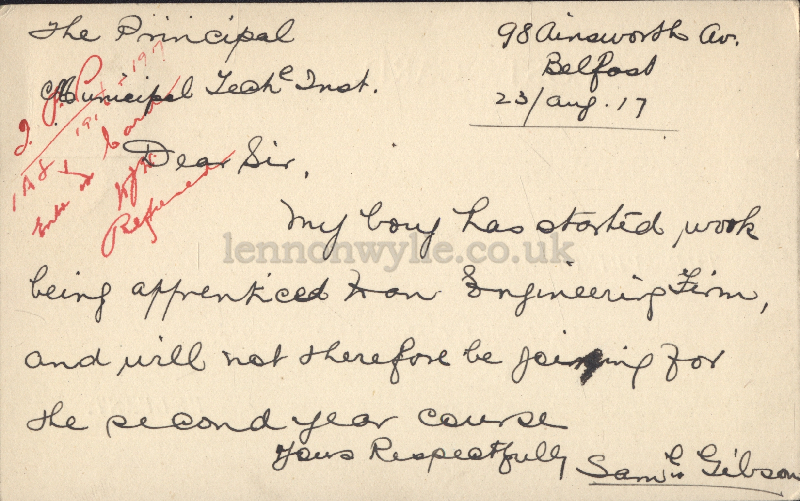 The Principal
Municipal Techl Inst.
98 Ainsworth Av.
Belfast
23/Aug. 17
Dear Sir,
My boy has started work
being apprenticed to an Engineering Firm,
and will not therefore be joining for
the second year course
Yours Respectfully
Saml Gibson
Card
lennonwylie.co.uk